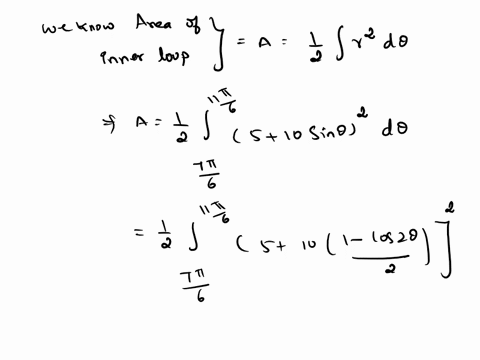 we know Area of inner loop } = A = 1/2 ∫ r² dθ
⇒ A = 1/2 ∫_{7π/6}^{11π/6} (5+10 sinθ)² dθ
= 1/2 ∫_{7π/6}^{11π/6} (5+ 10 (1-cos2θ)/2 ]²